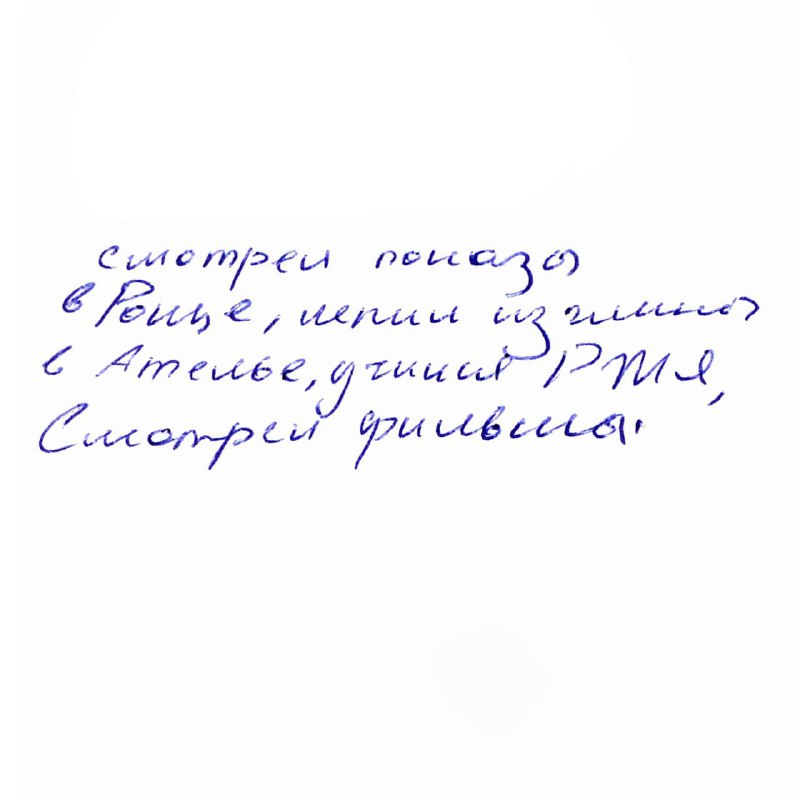 смотрел показы
в Роще, лепил из глины
в Ателье, учился РЖЯ,
Смотрел фильмы.